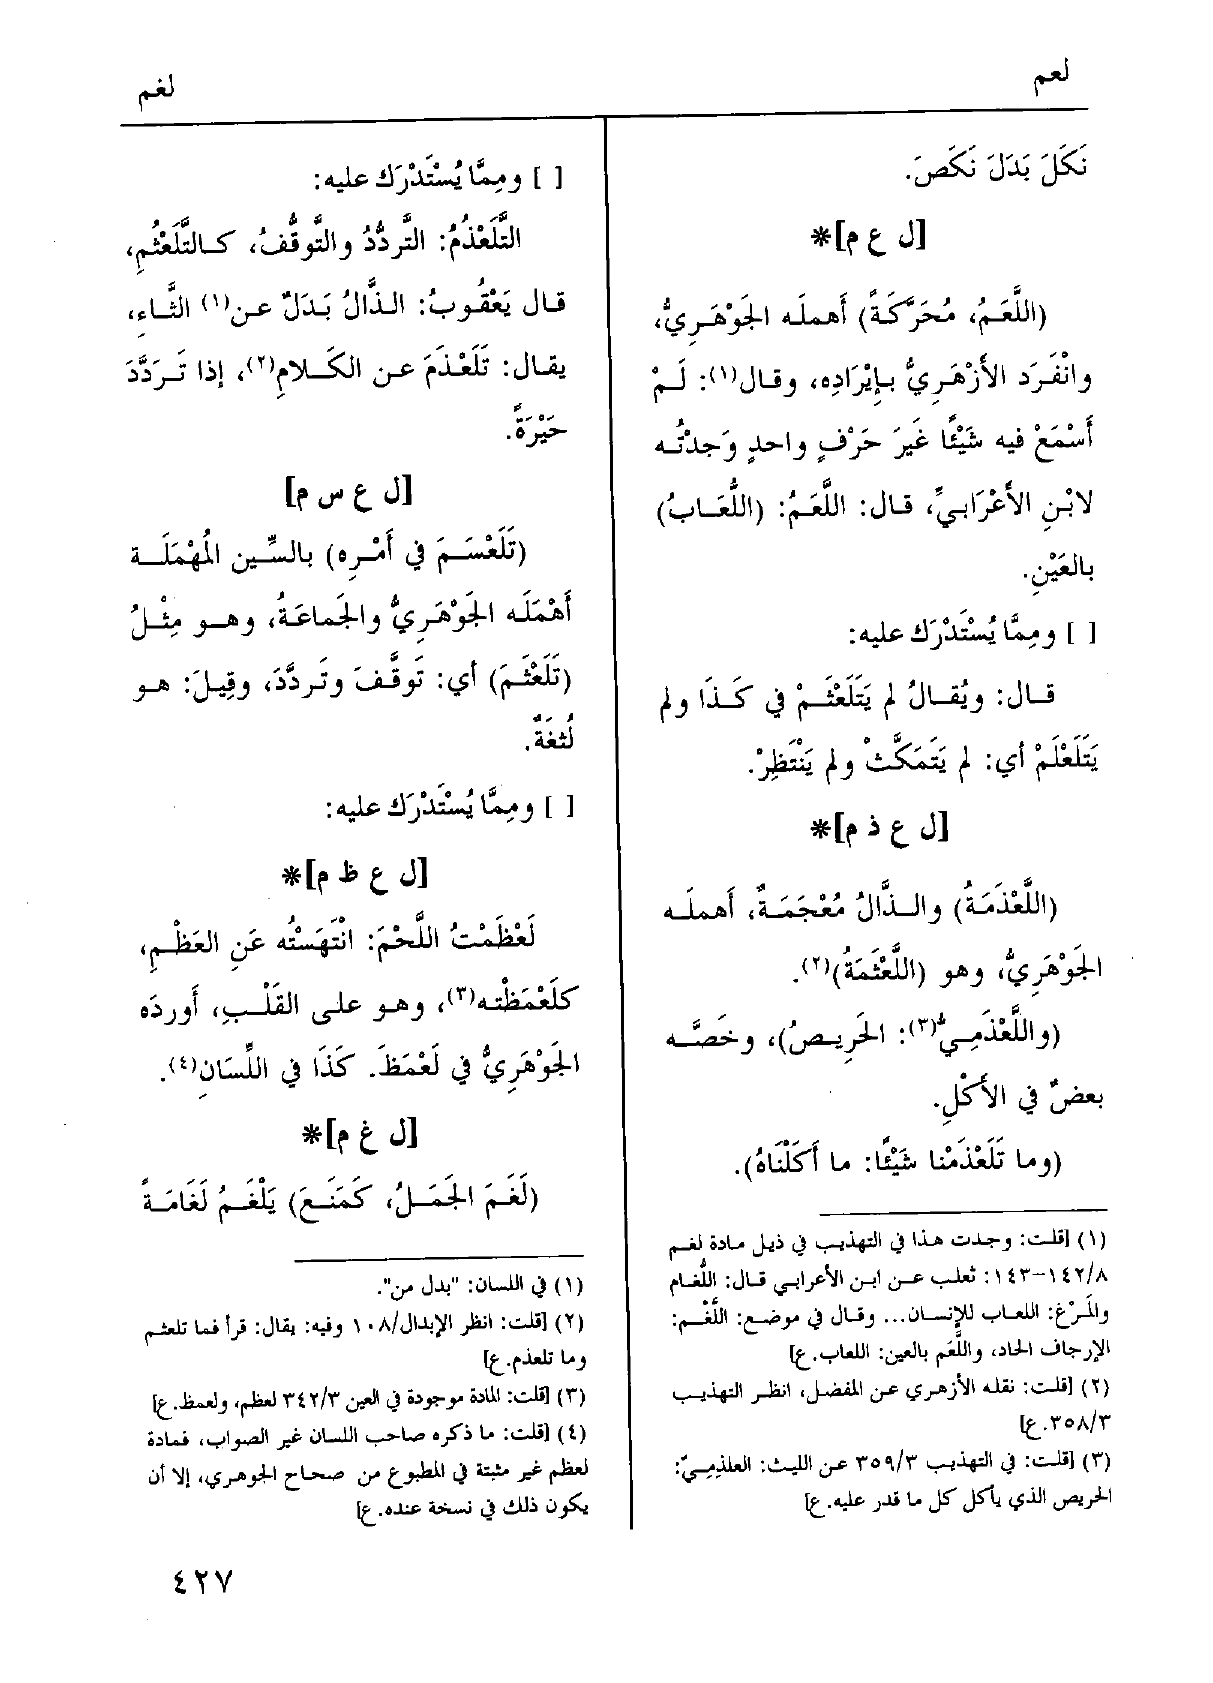 لعم
لغم
نَكَلَ بَدَلَ نَكَصَ.
[ل ع م]*
(اللَّعَمُ، مُحَرَّكَةً) أهمله الجَوْهَرِيُّ،
وانْفَرَد الأزْهَرِيُّ بإيْرَادِه، وقال(١): لَمْ
أسْمَعْ فيه شَيْئًا غَيرَ حَرْفٍ واحدٍ وَجدتُه
لابْنِ الأعْرَابيِّ، قال: اللَّعَمُ: (اللُّعَابُ)
بالعَيْنِ.
[ ] ومِمَّا يُسْتَدْرَك عليه:
قال: ويُقالُ لم يَتَلَعْثَمْ في كَذَا ولم
يَتَلَعْلَمْ أي: لم يَتَمَكَّثْ ولم يَنْتَظِرْ.
[ل ع ذ م]*
(اللَّعْذَمَةُ) والذَّالُ مُعْجَمَةٌ، أهمله
الجَوْهَرِيُّ، وهو (اللَّعْثَمَةُ)(٢).
(واللَّعْذَمِيُّ(٣): الحَرِيصُ)، وخَصَّه
بعضٌ في الأكْلِ.
(وما تَلَعْذَمْنا شَيْئًا: ما أكَلْنَاهُ).
(١) [قلت: وجدت هذا في التهذيب في ذيل مادة لغم
١٤٢/٨-١٤٣: ثعلب عن ابن الأعرابي قال: اللُّغام
والمَرْغ: اللعاب للإنسان... وقال في موضع: اللَّغْم:
الإرجاف الحاد، واللَّعَم بالعين: اللعاب.ع]
(٢) [قلت: نقله الأزهري عن المفضل، انظر التهذيب
٣٥٨/٣.ع]
(٣) [قلت: في التهذيب ٣٥٩/٣ عن الليث: العلذِميّ:
الحريص الذي يأكل كل ما قدر عليه.ع]
[ ] ومِمَّا يُسْتَدْرَك عليه:
التَّلَعْذُمُ: التَّردُّدُ والتَّوقُّفُ، كالتَّلَعْثُمِ،
قال يَعْقُوبُ: الذَّالُ بَدَلٌ عن(١) الثَّاءِ،
يقال: تَلَعْذَمَ عن الكَلامِ(٢)، إذا تَردَّدَ
حَيْرَةً.
[ل ع س م]
(تَلَعْسَمَ في أَمْرِه) بالسِّين المُهْمَلَة
أهْمَلَه الجَوْهَرِيُّ والجَماعَةُ، وهو مِثْلُ
(تَلَعْثَمَ) أي: تَوقَّفَ وتَردَّدَ، وقِيلَ: هو
لُثغَةٌ.
[ ] ومِمَّا يُسْتَدْرَك عليه:
[ل ع ظ م]*
لَعْظَمْتُ اللَّحْمَ: انْتَهَسْتُه عَنِ العَظْمِ،
كلَعْمَظْته(٣)، وهو على القَلْبِ، أوردَه
الجَوْهَرِيُّ في لَعْمَظَ. كَذَا في اللِّسَانِ(٤).
[ل غ م]*
(لَغَمَ الجَمَلُ، كَمَنَعَ) يَلْغَمُ لَغَامَةً
(١) في اللسان: "بدل من".
(٢) [قلت: انظر الإبدال/١٠٨ وفيه: يقال: قرأ فما تلعثم
وما تلعذم.ع]
(٣) [قلت: المادة موجودة في العين ٣٤٢/٣ لعظم، ولعمظ.ع]
(٤) [قلت: ما ذكره صاحب اللسان غير الصواب، فمادة
لعظم غير مثبتة في المطبوع من صحاح الجوهري، إلا أن
يكون ذلك في نسخة عنده.ع]
٤٢٧